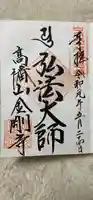 奉拝 令和元年五月二十日
弘法大師
高幡山金剛寺